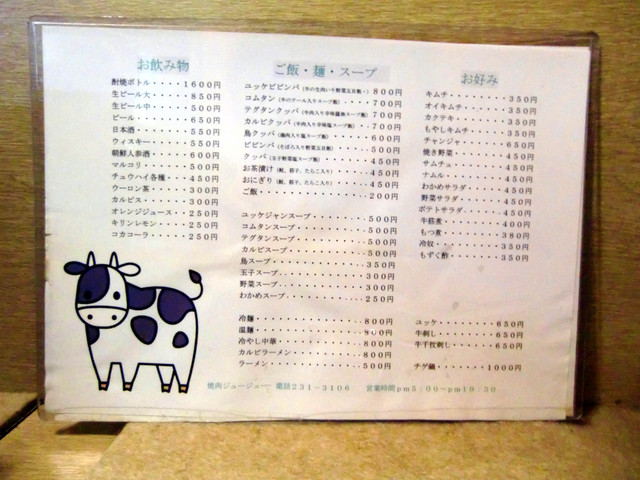 お飲み物
酎焼ボトル・・・・1600円
生ビール大・・・・850円
生ビール中・・・・500円
ビール・・・・・・650円
日本酒・・・・・・550円
ウィスキー・・・・550円
朝鮮人参酒・・・・600円
マルコリ・・・・・550円
チュウハイ各種・・450円
ウーロン茶・・・・300円
カルピス・・・・・300円
オレンジジュース・・250円
キリンレモン・・・250円
コカコーラ・・・・250円
ご飯・麺・スープ
ユッケビビンバ(牛の生肉いり野菜五目飯)・800円
コムタン(牛のテール入りスープ飯)・・・700円
テグタンクッパ(牛肉入り辛味醤油スープ飯)・700円
カルビクッパ(牛肉入り辛味塩スープ飯)・・700円
鳥クッパ(鶏肉入り塩スープ飯)・・・500円
ビビンバ(そぼろ入り野菜五目飯)・・・500円
クッパ(玉子野菜塩スープ飯)・・・・450円
お茶漬け(鮭、梅干、たらこ入り)・・・450円
おにぎり(鮭、梅干、たらこ入り)・・・450円
ご飯・・・・・・・・・・200円
ユッケジャンスープ・・・・・500円
コムタンスープ・・・・・・・500円
テグタンスープ・・・・・・・500円
カルビスープ・・・・・・・・500円
鳥スープ・・・・・・・・・・350円
玉子スープ・・・・・・・・・300円
野菜スープ・・・・・・・・・300円
わかめスープ・・・・・・・・250円
冷麺・・・・・・・・・・・・800円
温麺・・・・・・・・・・・・800円
冷やし中華・・・・・・・・・800円
カルビラーメン・・・・・・・800円
ラーメン・・・・・・・・・・500円
お好み
キムチ・・・・・・・350円
オイキムチ・・・・・350円
カクテキ・・・・・・350円
もやしキムチ・・・・350円
チャンジャ・・・・・650円
焼き野菜・・・・・・450円
サムチュ・・・・・・450円
ナムル・・・・・・・450円
わかめサラダ・・・・450円
野菜サラダ・・・・・450円
ポテトサラダ・・・・450円
牛筋煮・・・・・・・400円
もつ煮・・・・・・・380円
冷奴・・・・・・・・350円
もずく酢・・・・・・350円
ユッケ・・・・・・・・・650円
牛刺し・・・・・・・・・650円
牛千枚刺し・・・・・・・650円
チゲ鍋・・・・・・・・1000円
焼肉ジュージュー 電話231-3106 営業時間pm5:00~pm10:30